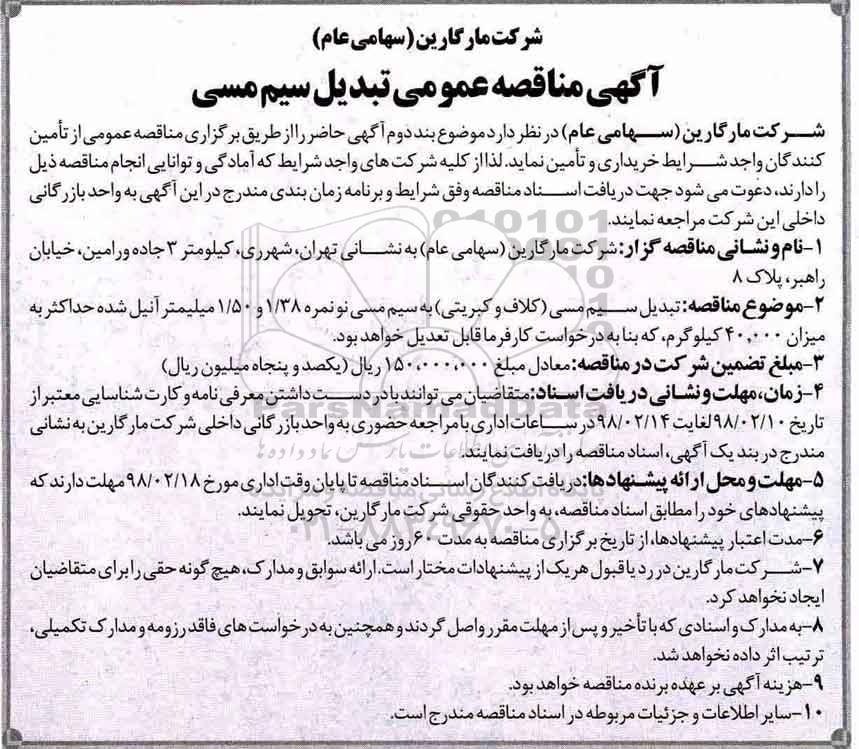 شرکت مارگارین (سهامی عام)
آگهی مناقصه عمومی تبدیل سیم مسی
شرکت مارگارین (سهامی عام) در نظر دارد موضوع بند دوم آگهی حاضر را از طریق برگزاری مناقصه عمومی از تأمین
کنندگان واجد شرایط خریداری و تأمین نماید. لذا از کلیه شرکت های واجد شرایط که آمادگی و توانایی انجام مناقصه ذیل
را دارند، دعوت می شود جهت دریافت اسناد مناقصه وفق شرایط و برنامه زمان بندی مندرج در این آگهی به واحد بازرگانی
داخلی این شرکت مراجعه نمایند.
۱-نام و نشانی مناقصه گزار: شرکت مارگارین (سهامی عام) به نشانی تهران، شهرری، کیلومتر ۳ جاده ورامین، خیابان
راهبر، پلاک ۸
۲-موضوع مناقصه: تبدیل سیم مسی (کلاف و کبریتی) به سیم مسی نو نمره ۱/۳۸ و ۱/۵۰ میلیمتر آنیل شده حداکثر به
میزان ۴۰,۰۰۰ کیلوگرم، که بنا به درخواست کارفرما قابل تعدیل خواهد بود.
۳-مبلغ تضمین شرکت در مناقصه: معادل مبلغ ۱۵۰,۰۰۰,۰۰۰ ریال (یکصد و پنجاه میلیون ریال)
۴-زمان، مهلت و نشانی دریافت اسناد: متقاضیان می توانند با در دست داشتن معرفی نامه و کارت شناسایی معتبر از
تاریخ ۹۸/۰۲/۱۰ لغایت ۹۸/۰۲/۱۴ در ساعات اداری با مراجعه حضوری به واحد بازرگانی داخلی شرکت مارگارین به نشانی
مندرج در بند یک آگهی، اسناد مناقصه را دریافت نمایند.
۵-مهلت و محل ارائه پیشنهادها: دریافت کنندگان اسناد مناقصه تا پایان وقت اداری مورخ ۹۸/۰۲/۱۸ مهلت دارند که
پیشنهادهای خود را مطابق اسناد مناقصه، به واحد حقوقی شرکت مارگارین، تحویل نمایند.
۶-مدت اعتبار پیشنهادها، از تاریخ برگزاری مناقصه به مدت ۶۰ روز می باشد.
۷-شرکت مارگارین در رد یا قبول هر یک از پیشنهادات مختار است. ارائه سوابق و مدارک، هیچ گونه حقی را برای متقاضیان
ایجاد نخواهد کرد.
۸-به مدارک و اسنادی که با تأخیر و پس از مهلت مقرر واصل گردند و همچنین به درخواست های فاقد رزومه و مدارک تکمیلی،
ترتیب اثر داده نخواهد شد.
۹-هزینه آگهی بر عهده برنده مناقصه خواهد بود.
۱۰-سایر اطلاعات و جزئیات مربوطه در اسناد مناقصه مندرج است.
ParsNamadData